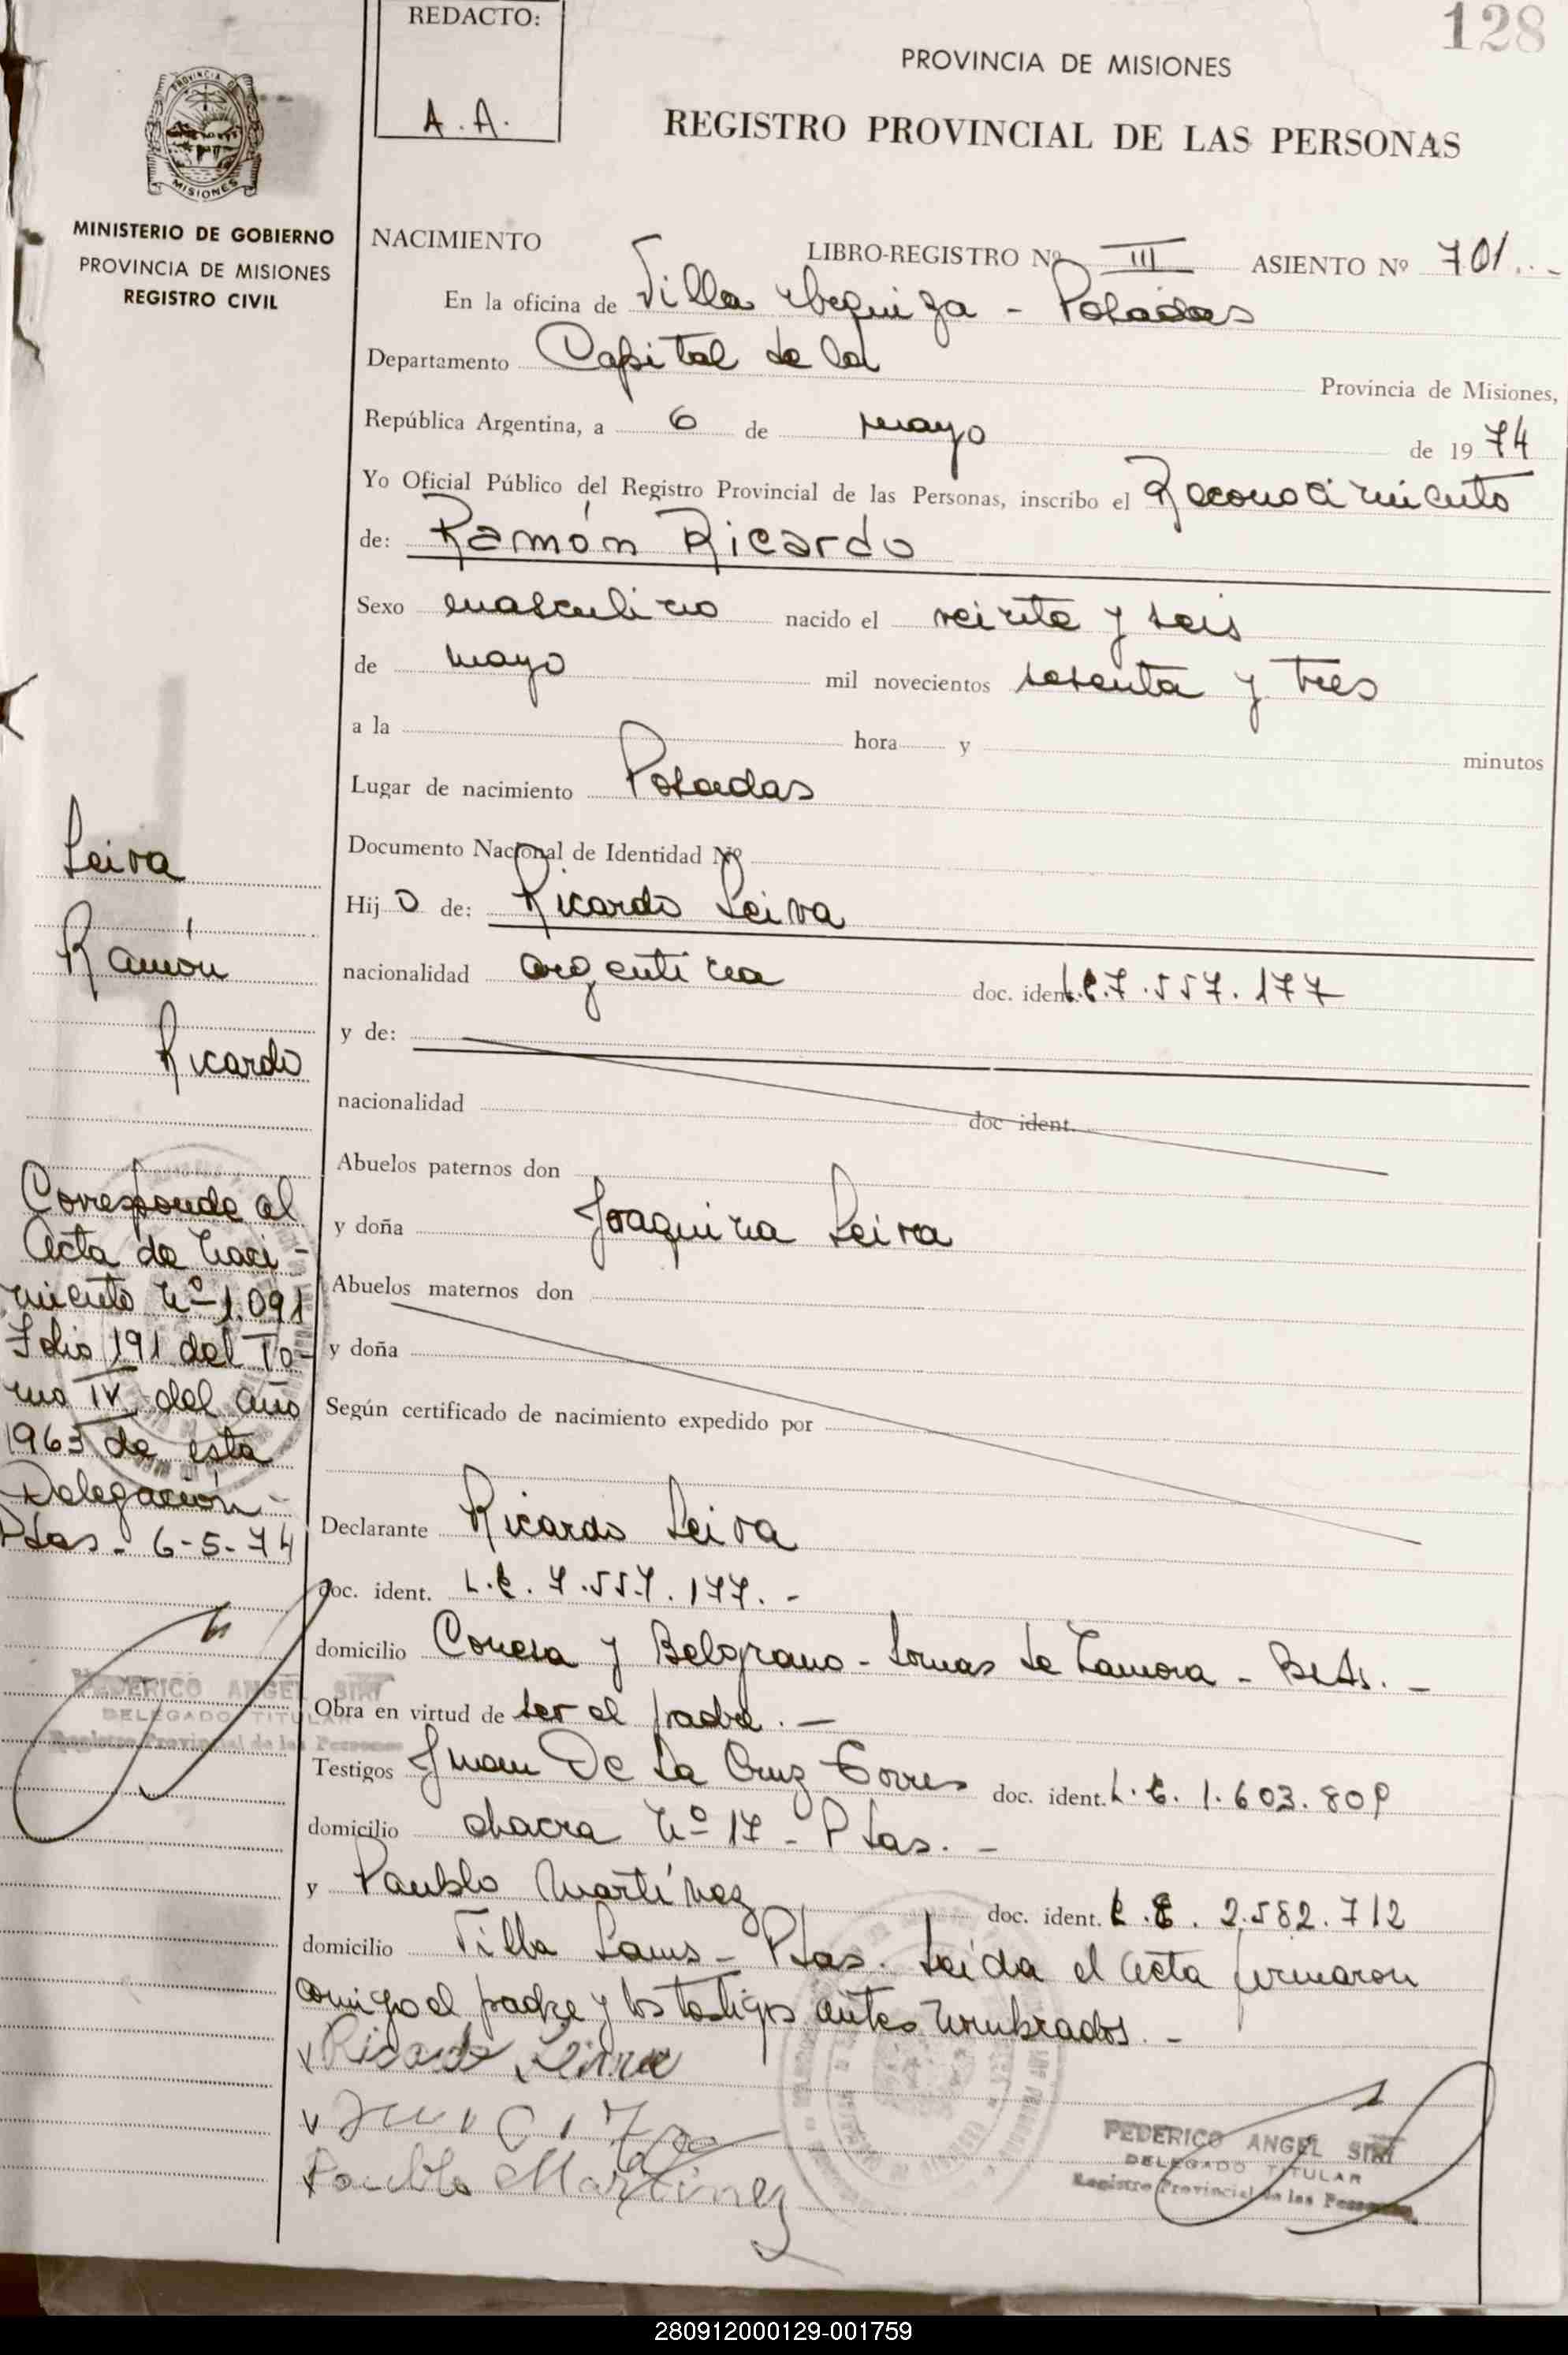 128
REDACTO:
A.A.
PROVINCIA DE MISIONES
REGISTRO PROVINCIAL DE LAS PERSONAS
PROVINCIA DE
MISIONES
MINISTERIO DE GOBIERNO
PROVINCIA DE MISIONES
REGISTRO CIVIL
NACIMIENTO LIBRO-REGISTRO Nº III ASIENTO Nº 701..-
En la oficina de Villa Urquiza - Posadas
Departamento Capital de la Provincia de Misiones,
República Argentina, a 6 de mayo de 1974
Yo Oficial Público del Registro Provincial de las Personas, inscribo el Reconocimiento
de: Ramón Ricardo
Sexo masculino nacido el veinte y seis
de mayo mil novecientos sesenta y tres
a la hora y minutos
Lugar de nacimiento Posadas
Documento Nacional de Identidad Nº
Hijo de: Ricardo Leiva
nacionalidad argentina doc. ident. L.E.7.557.177
y de:
nacionalidad doc ident.
Abuelos paternos don
y doña Joaquina Leiva
Abuelos maternos don
y doña
Según certificado de nacimiento expedido por
Declarante Ricardo Leiva
doc. ident. L.E. 7.557.177.-
domicilio Conesa y Belgrano - Lomas de Zamora - Bs As. -
Obra en virtud de ser el padre. -
Testigos Juan De La Cruz Torres doc. ident. L.E. 1.603.809
domicilio chacra Nº 17 - Pdas. -
y Paublo Martínez doc. ident. L.E. 2.582.712
domicilio Villa Lanus - Pdas. Leida el acta firmaron
comigo el padre y los testigos antes nombrados. -
Ricardo Leiva
Paublo Martinez
FEDERICO ANGEL SIRI
DELEGADO TITULAR
Registro Provincial de las Personas
Leiva
Ramón
Ricardo
Corresponde al
Acta de Naci-
miento Nº 1.091
Folio 191 del To-
mo IV del año
1963 de esta
Delegación -
Pdas - 6-5-74
FEDERICO ANGEL SIRI
DELEGADO TITULAR
Registro Provincial de las Personas
280912000129-001759